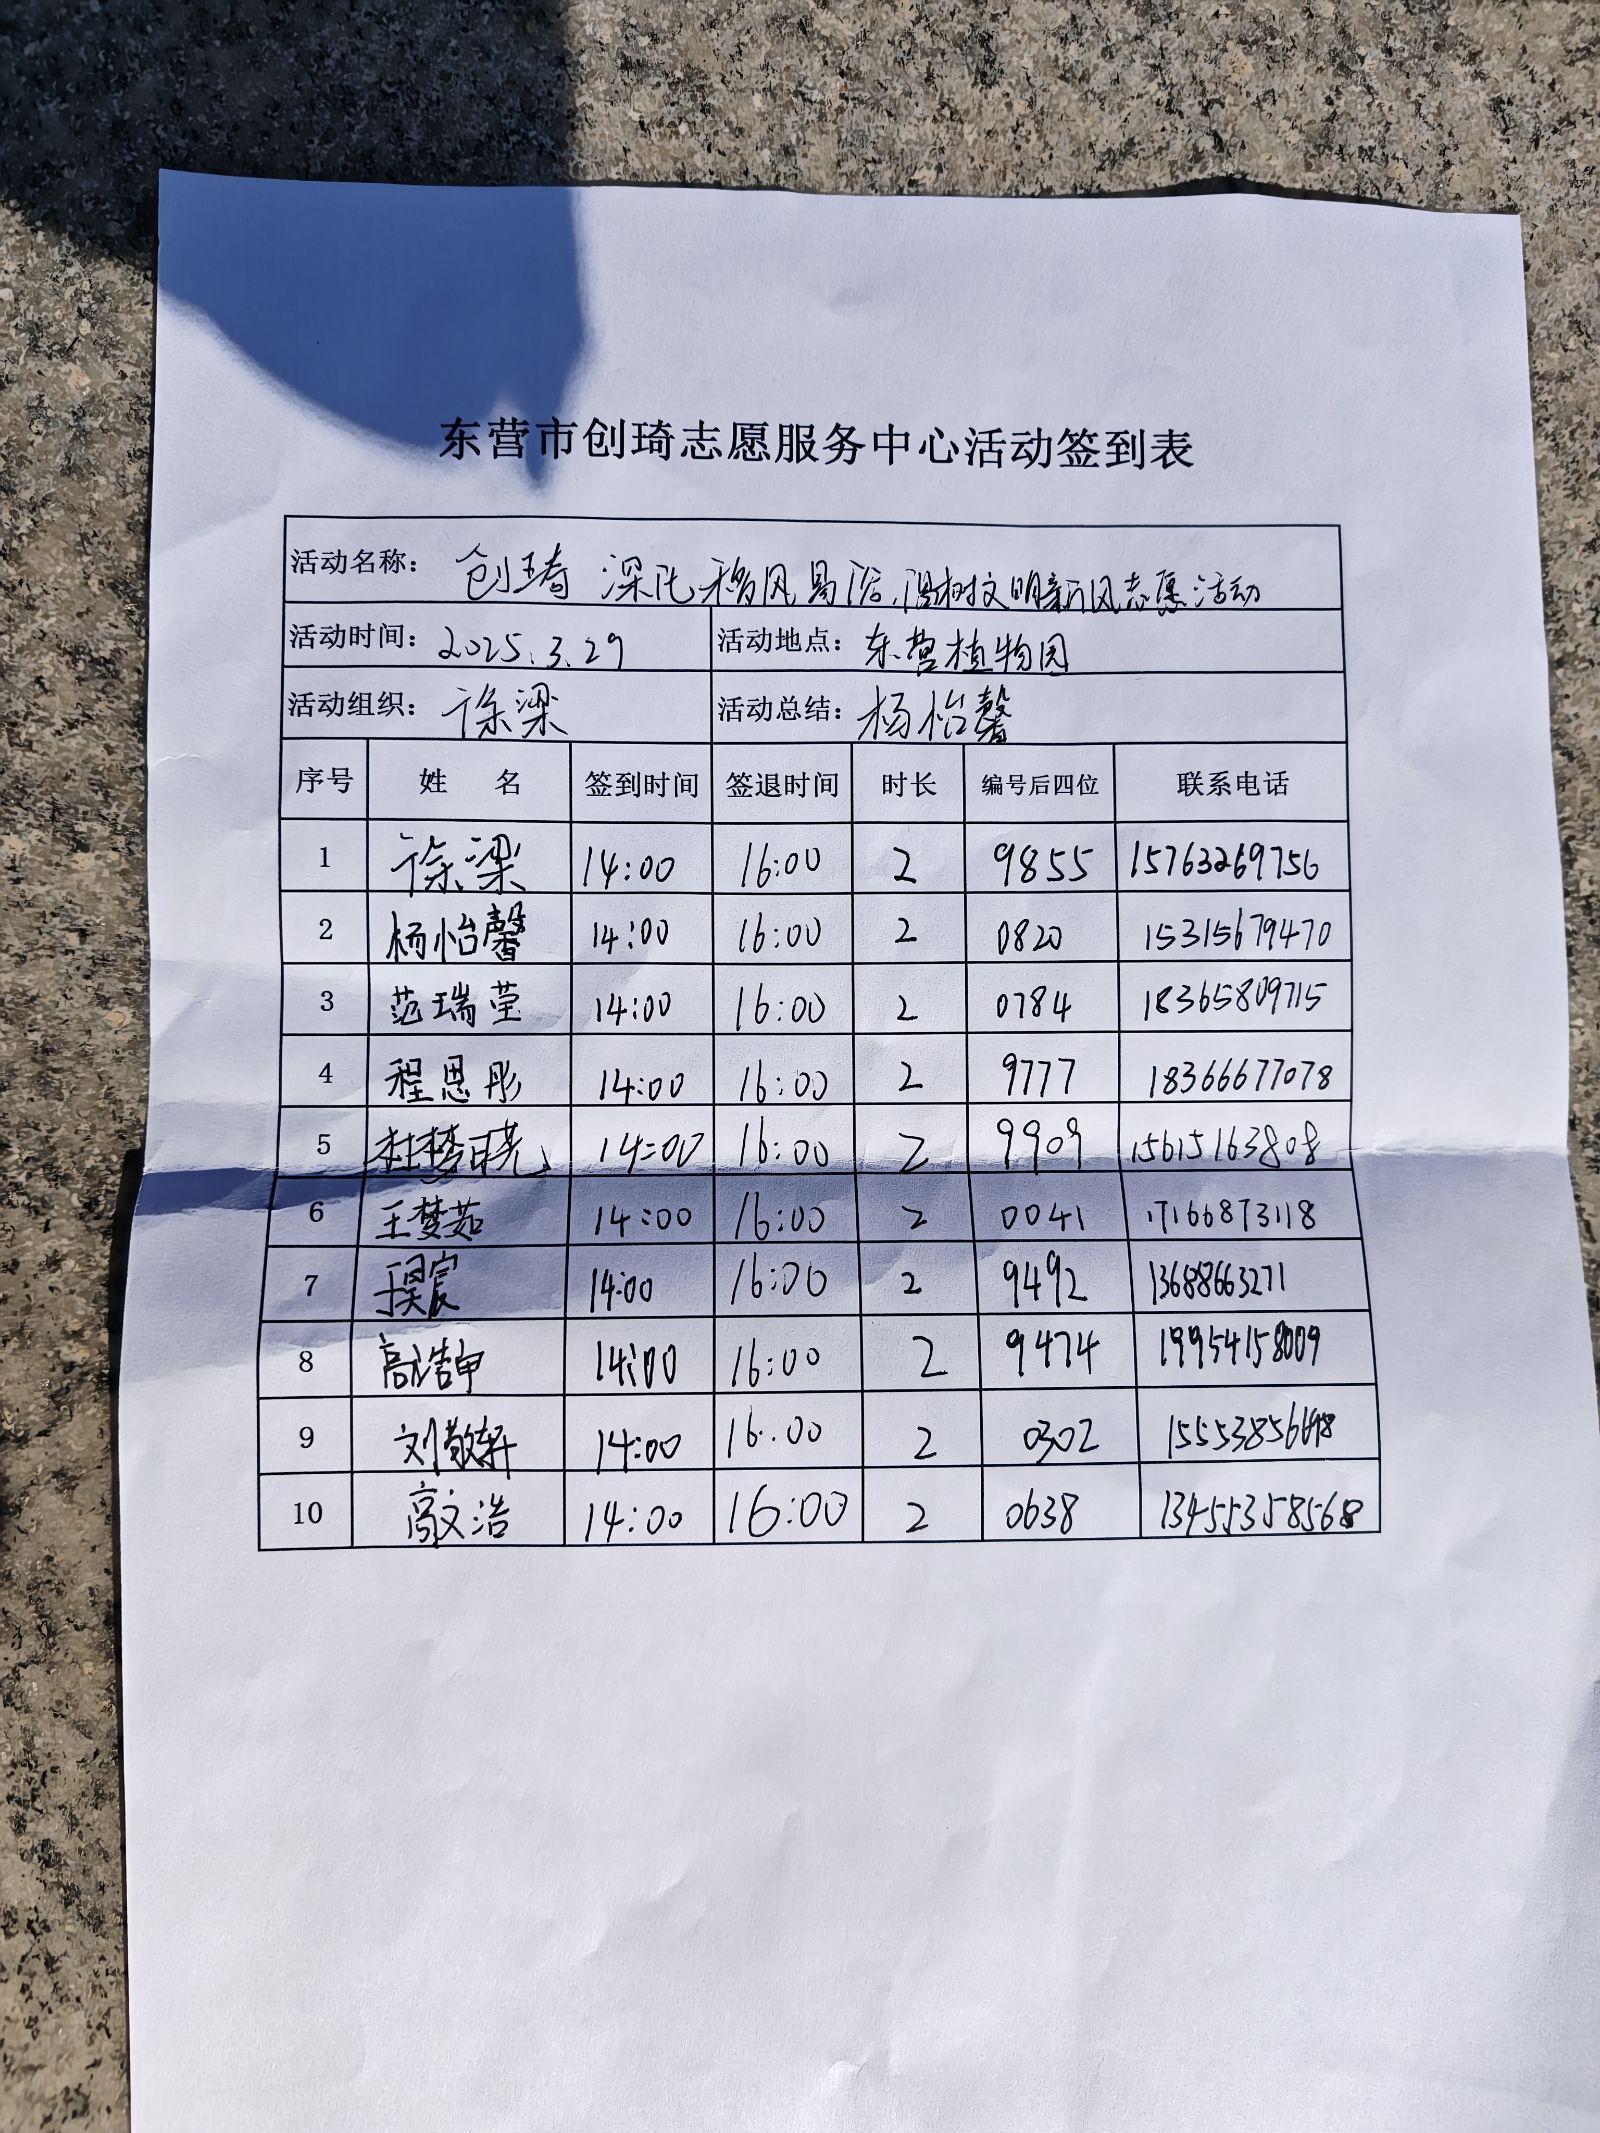 东营市创琦志愿服务中心活动签到表
活动名称： 创琦 深化移风易俗,倡树文明新风志愿活动
活动时间： 2025.3.29 活动地点： 东营植物园
活动组织： 徐梁 活动总结： 杨怡馨
序号 姓 名 签到时间 签退时间 时长 编号后四位 联系电话
1 徐梁 14:00 16:00 2 9855 15763269756
2 杨怡馨 14:00 16:00 2 0820 15315679470
3 范瑞莹 14:00 16:00 2 0784 18365809715
4 程恩彤 14:00 16:00 2 9777 18366677078
5 杜梦晓 14:00 16:00 2 9909 15615163808
6 王梦茹 14:00 16:00 2 0041 17166873118
7 于昊宸 14:00 16:00 2 9492 13688663271
8 高浩申 14:00 16:00 2 9474 19954158009
9 刘敬轩 14:00 16:00 2 0302
10 高文浩 14:00 16:00 2 0638